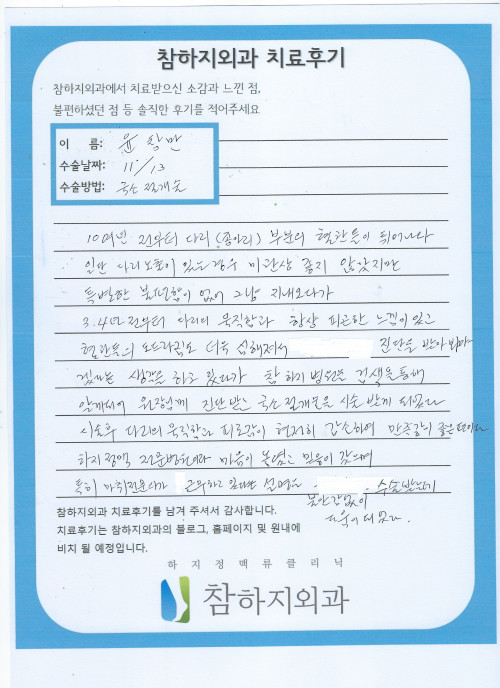 참하지외과 치료후기
참하지외과에서 치료받으신 소감과 느낀 점,
불편하셨던 점 등 솔직한 후기를 적어주세요
이 름: 윤창만
수술날짜: 11/13
수술방법: 국소절개술
10여년 전부터 다리(종아리) 부분의 혈관들이 튀어나와
일단 다리노출이 있는 경우 미관상 좋지 않았지만
특별한 불편함이 없어 그냥 지내오다가
3.4년 전부터 다리의 묵직함과 항상 피곤한 느낌이 있고
혈관들의 도드라짐도 더욱 심해져서 진단을 받아봐야
겠다는 생각을 하고 있다가 참하지병원을 검색을 통해
알게되어 원장님께 진단받고 국소절개술을 시술받게 되었다
시술후 다리의 묵직함과 피로감이 현저히 감소하여 만족감이 좋은 편이다
하지정맥 전문병원이라 마음이 놓였고 믿음이 갔으며
특히 마취전문의가 근무하고 있다는 설명을 수술받기
불안감없이
더욱이 되었다.
참하지외과 치료후기를 남겨 주셔서 감사합니다.
치료후기는 참하지외과의 블로그, 홈페이지 및 원내에
비치 될 예정입니다.
하지정맥류클리닉
참하지외과